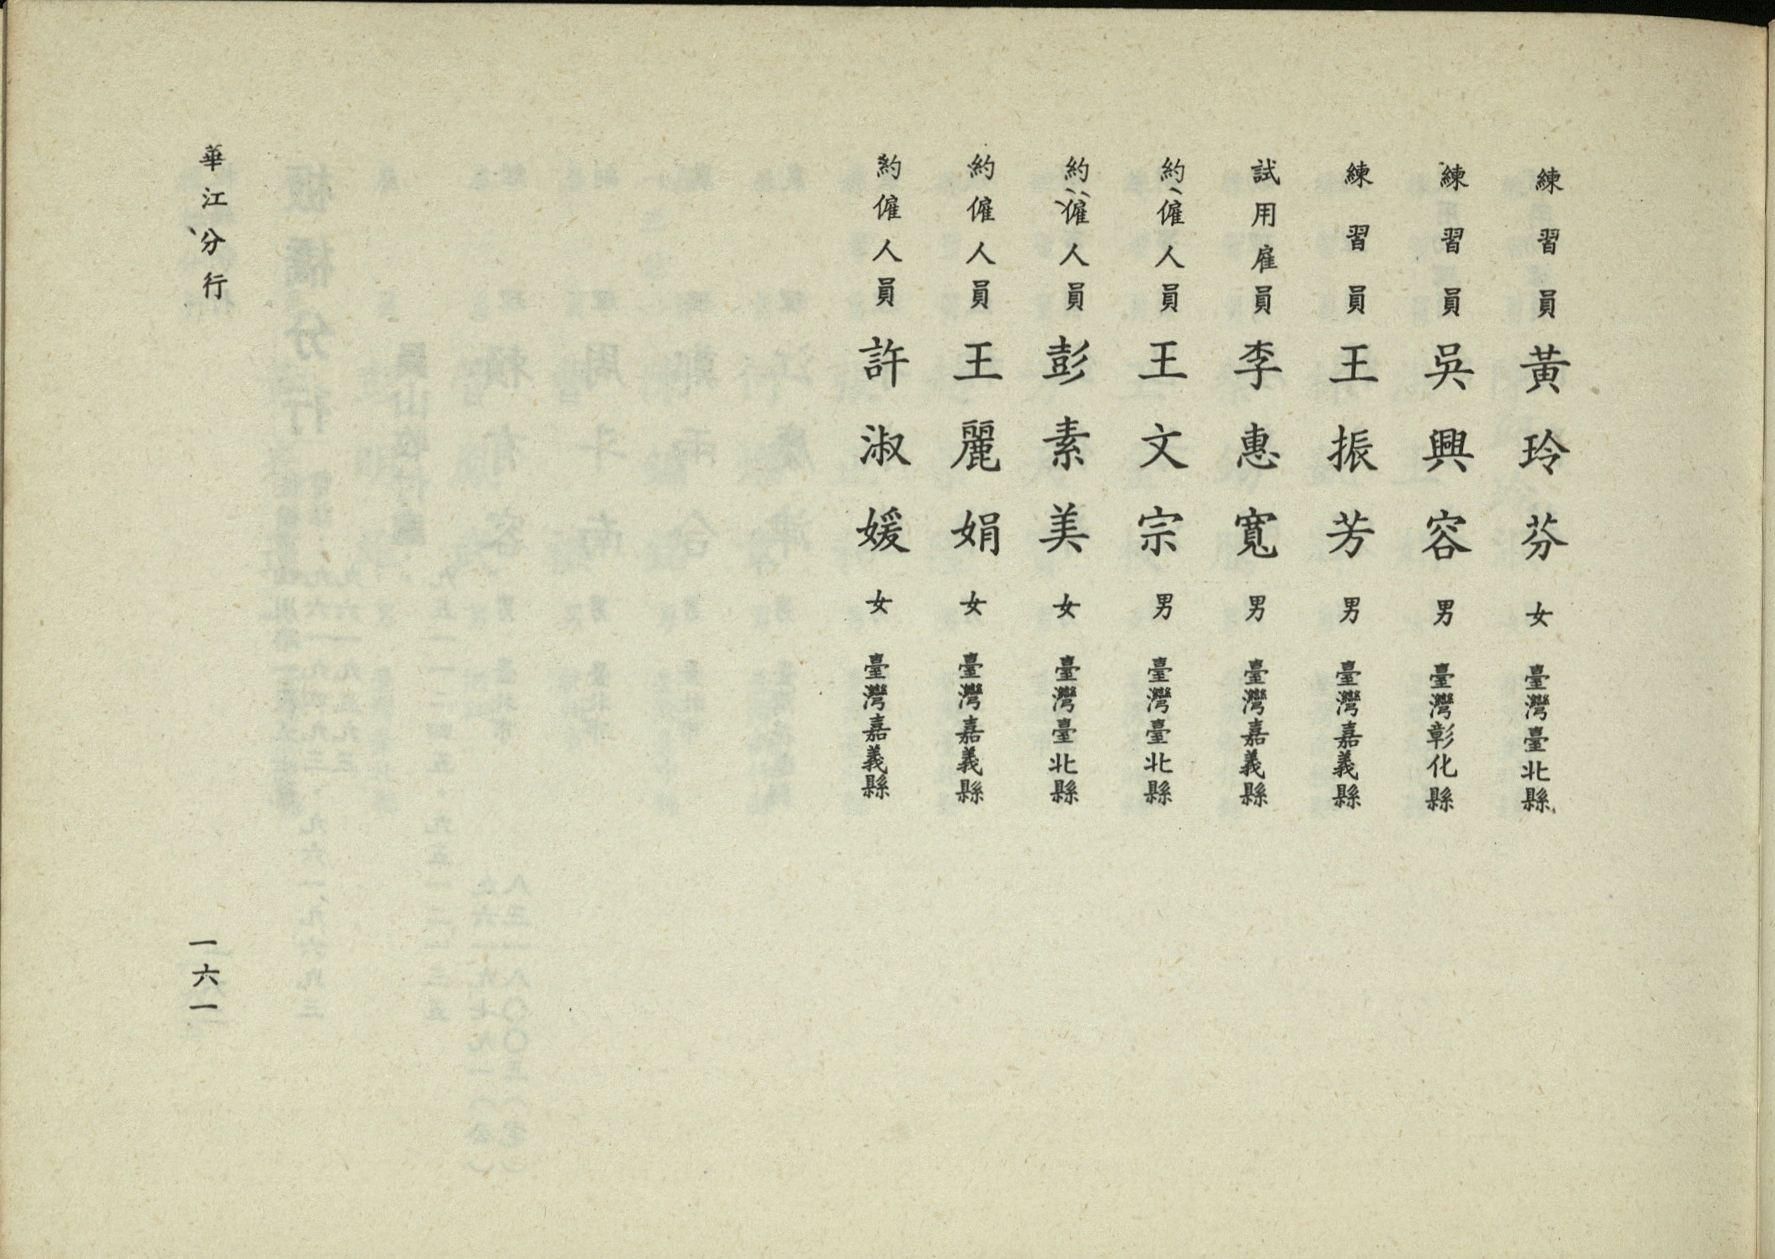 練習員 黃玲芬 女 臺灣臺北縣
練習員 吳興容 男 臺灣彰化縣
練習員 王振芳 男 臺灣嘉義縣
試用雇員 李惠寬 男 臺灣嘉義縣
約僱人員 王文宗 男 臺灣臺北縣
約僱人員 彭素美 女 臺灣臺北縣
約僱人員 王麗娟 女 臺灣嘉義縣
約僱人員 許淑媛 女 臺灣嘉義縣
華江分行
一六一